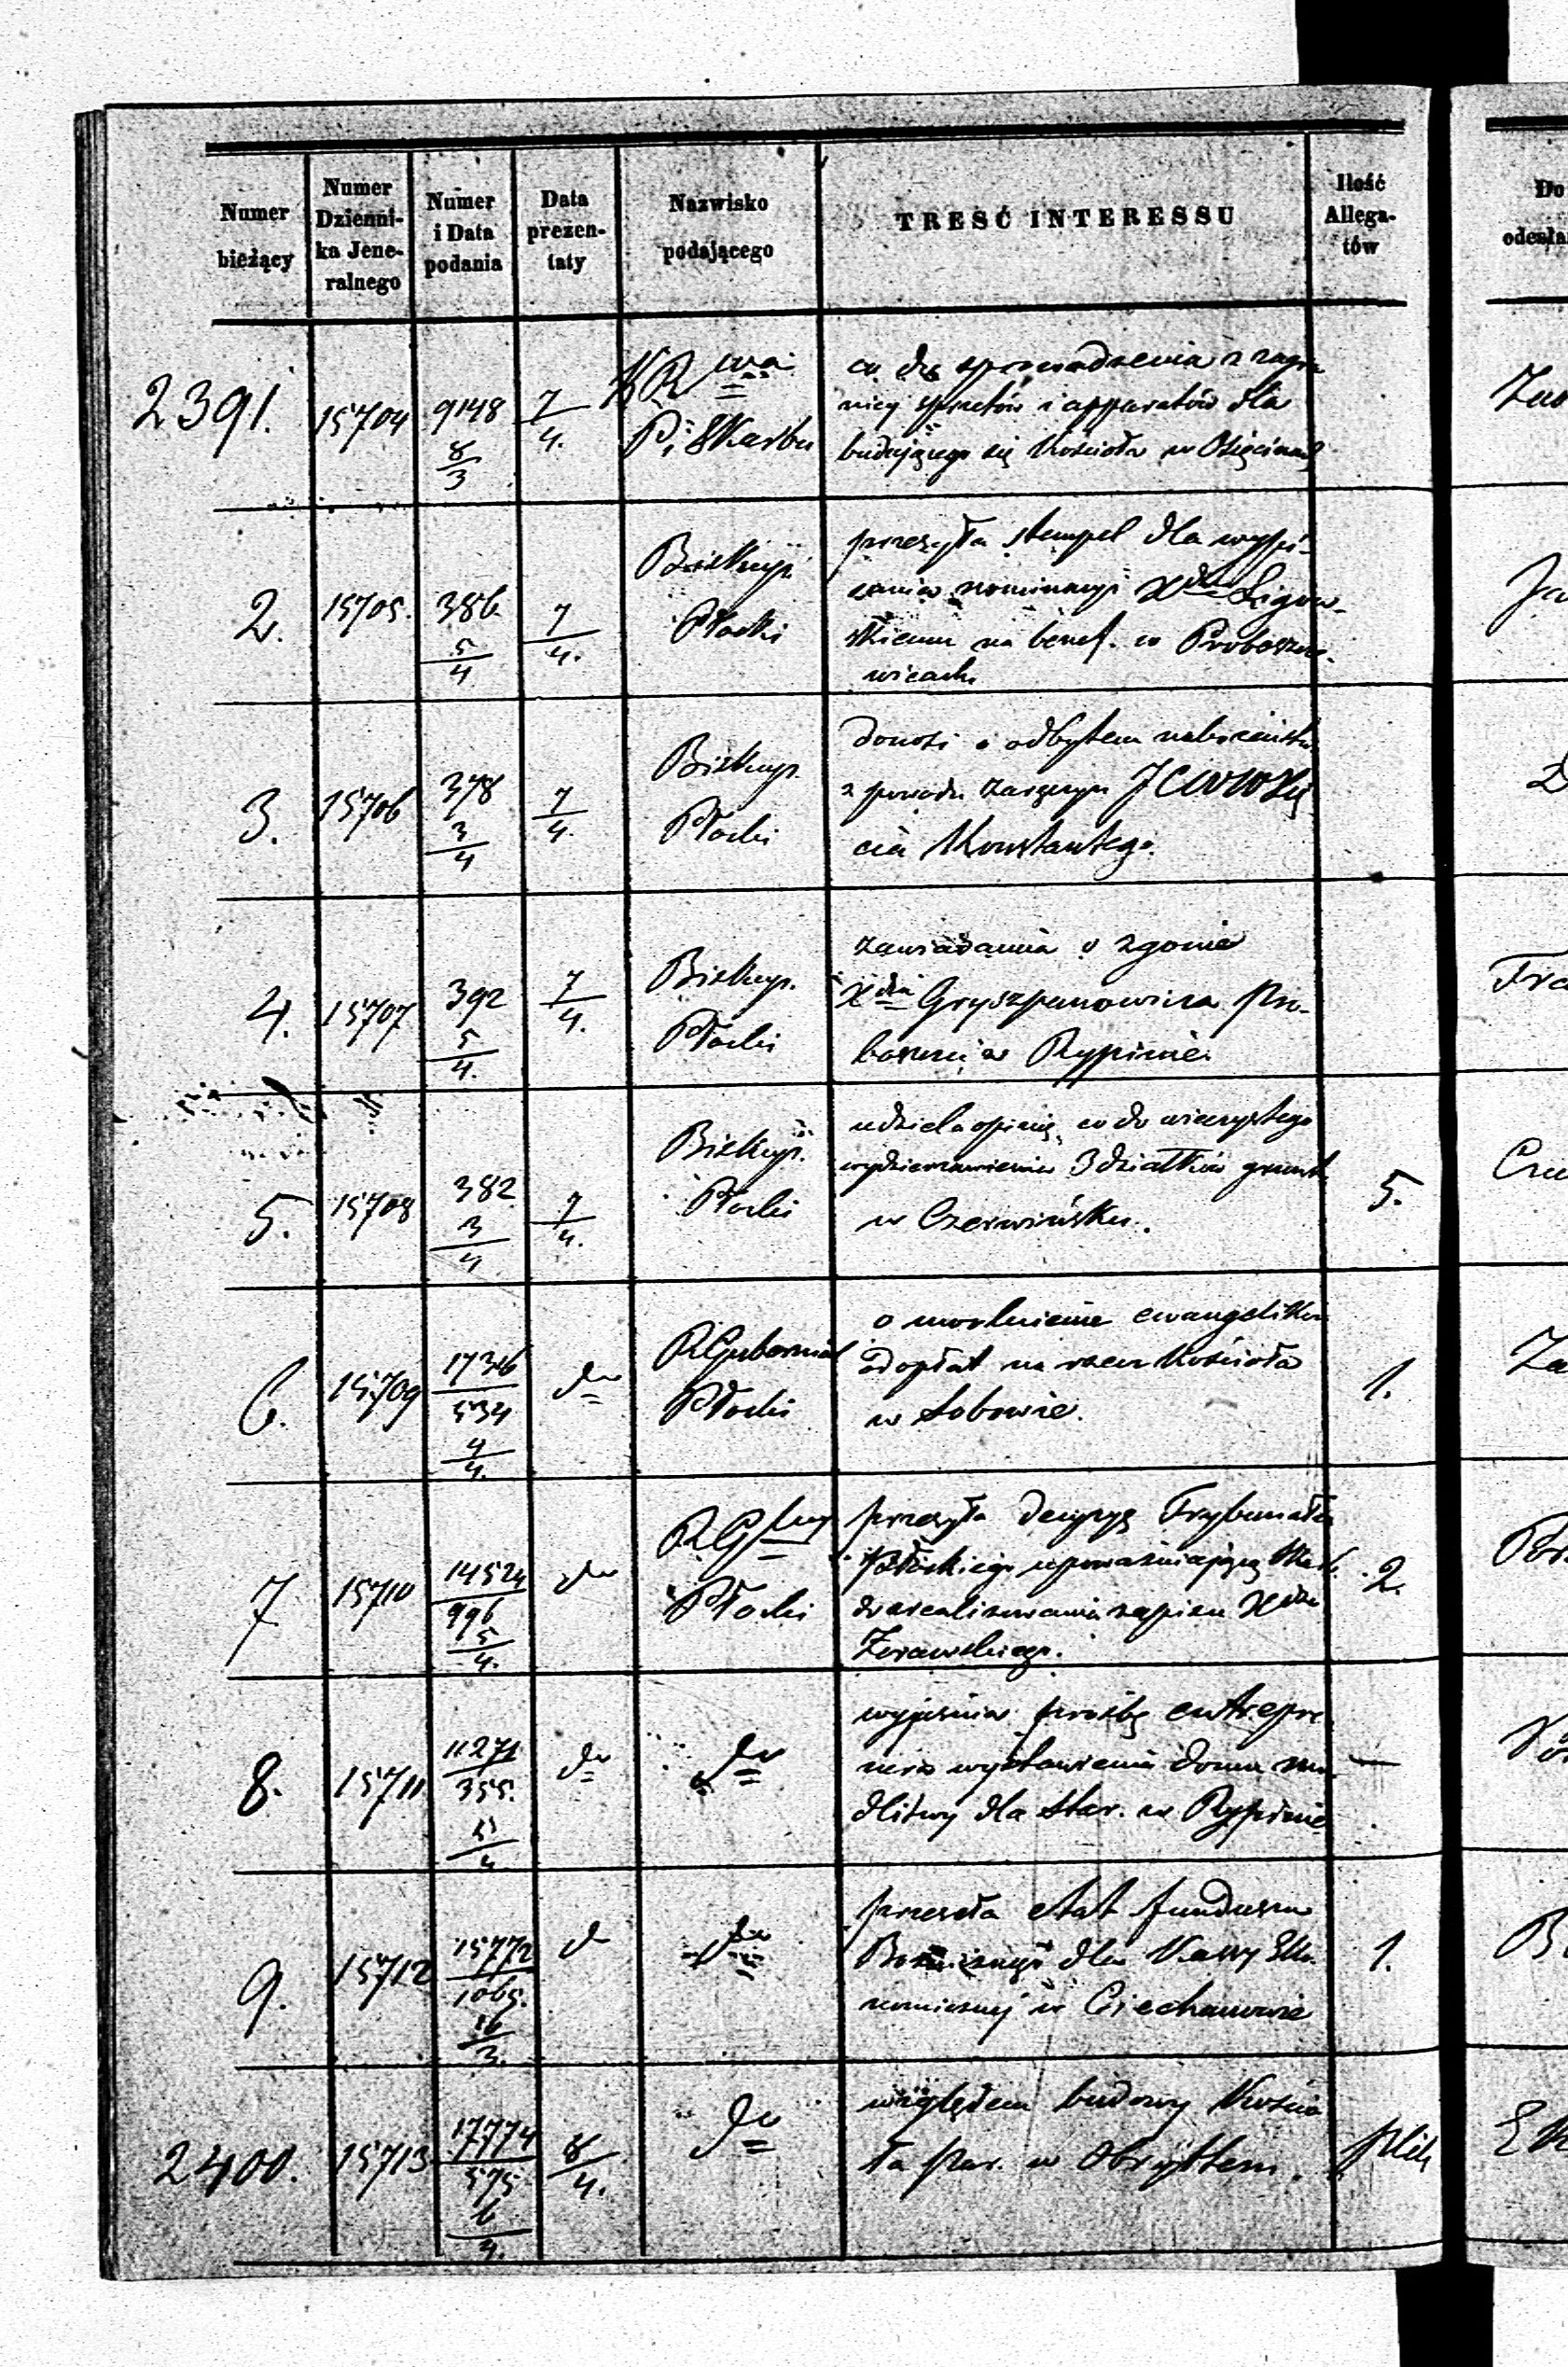 Numer bieżący | Numer Dzienni-ka Jene-ralnego | Numer i Data podania | Data prezen-taty | Nazwisko podającego | TREŚĆ INTERESSU | Ilość Allega-tów | Do
odesła
2391. 15704 9148 8/3 7/4. KRwa P. i Skarbu
co do sprowadzenia z zagra
nicy sprzetów i apparatów dla
budującego się Kościoła w Osięcinach
2. 15705. 386 5/4 7/4. Biskup Płocki
przesyła stempel dla wypi-
sania nominacyi Xdzu Ligow-
skiemu na benef. w Proboszcze-
wicach
3. 15706 378 3/4 7/4. Biskup Płocki
donosi o odbytem nabożeństw.
z powodu zaręczyn JCWWXię
cia Konstantego.
4. 15707 392 5/4. 7/4. Biskup. Płocki
zawiadamia o zgonie
Xdza Gryszpanowicza Pro-
boszcza w Rypinie
5. 15708 382 3/4 7/4. Biskup. Płocki 5.
udziela opinię co do wieczystego
wydzierżawienia 3 działków grunt.
w Czerwińsku.
6. 15709 1736/534 4/4. do R Gubernial Płocki 1.
o uwolnienie ewangelików
od opłat na rzecz Kościoła
w Sobowie.
7 15710 14524/996 5/4. do RG Płocki 2.
przesyła decyzyę Trybunału
Płockiego upoważniającą Skarb.
do zrealizowania zapisu Xdza
Żorawskiego.
8. 15711 11271/355. 5/4 do do —
wyjaśnia prośbę entrepre
nera wystawienia domu mo
dlitwy dla Star. w Rypinie
9. 15712 15772/1065. 16/3. do do 1.
przesyła etat funduszu
dla Kassy Eko
nomicznej w Ciechanowie
2400. 15713 17774/575 6/4. 8/4. do plik
względem budowy Kościo
ła Par. w Obrytem.